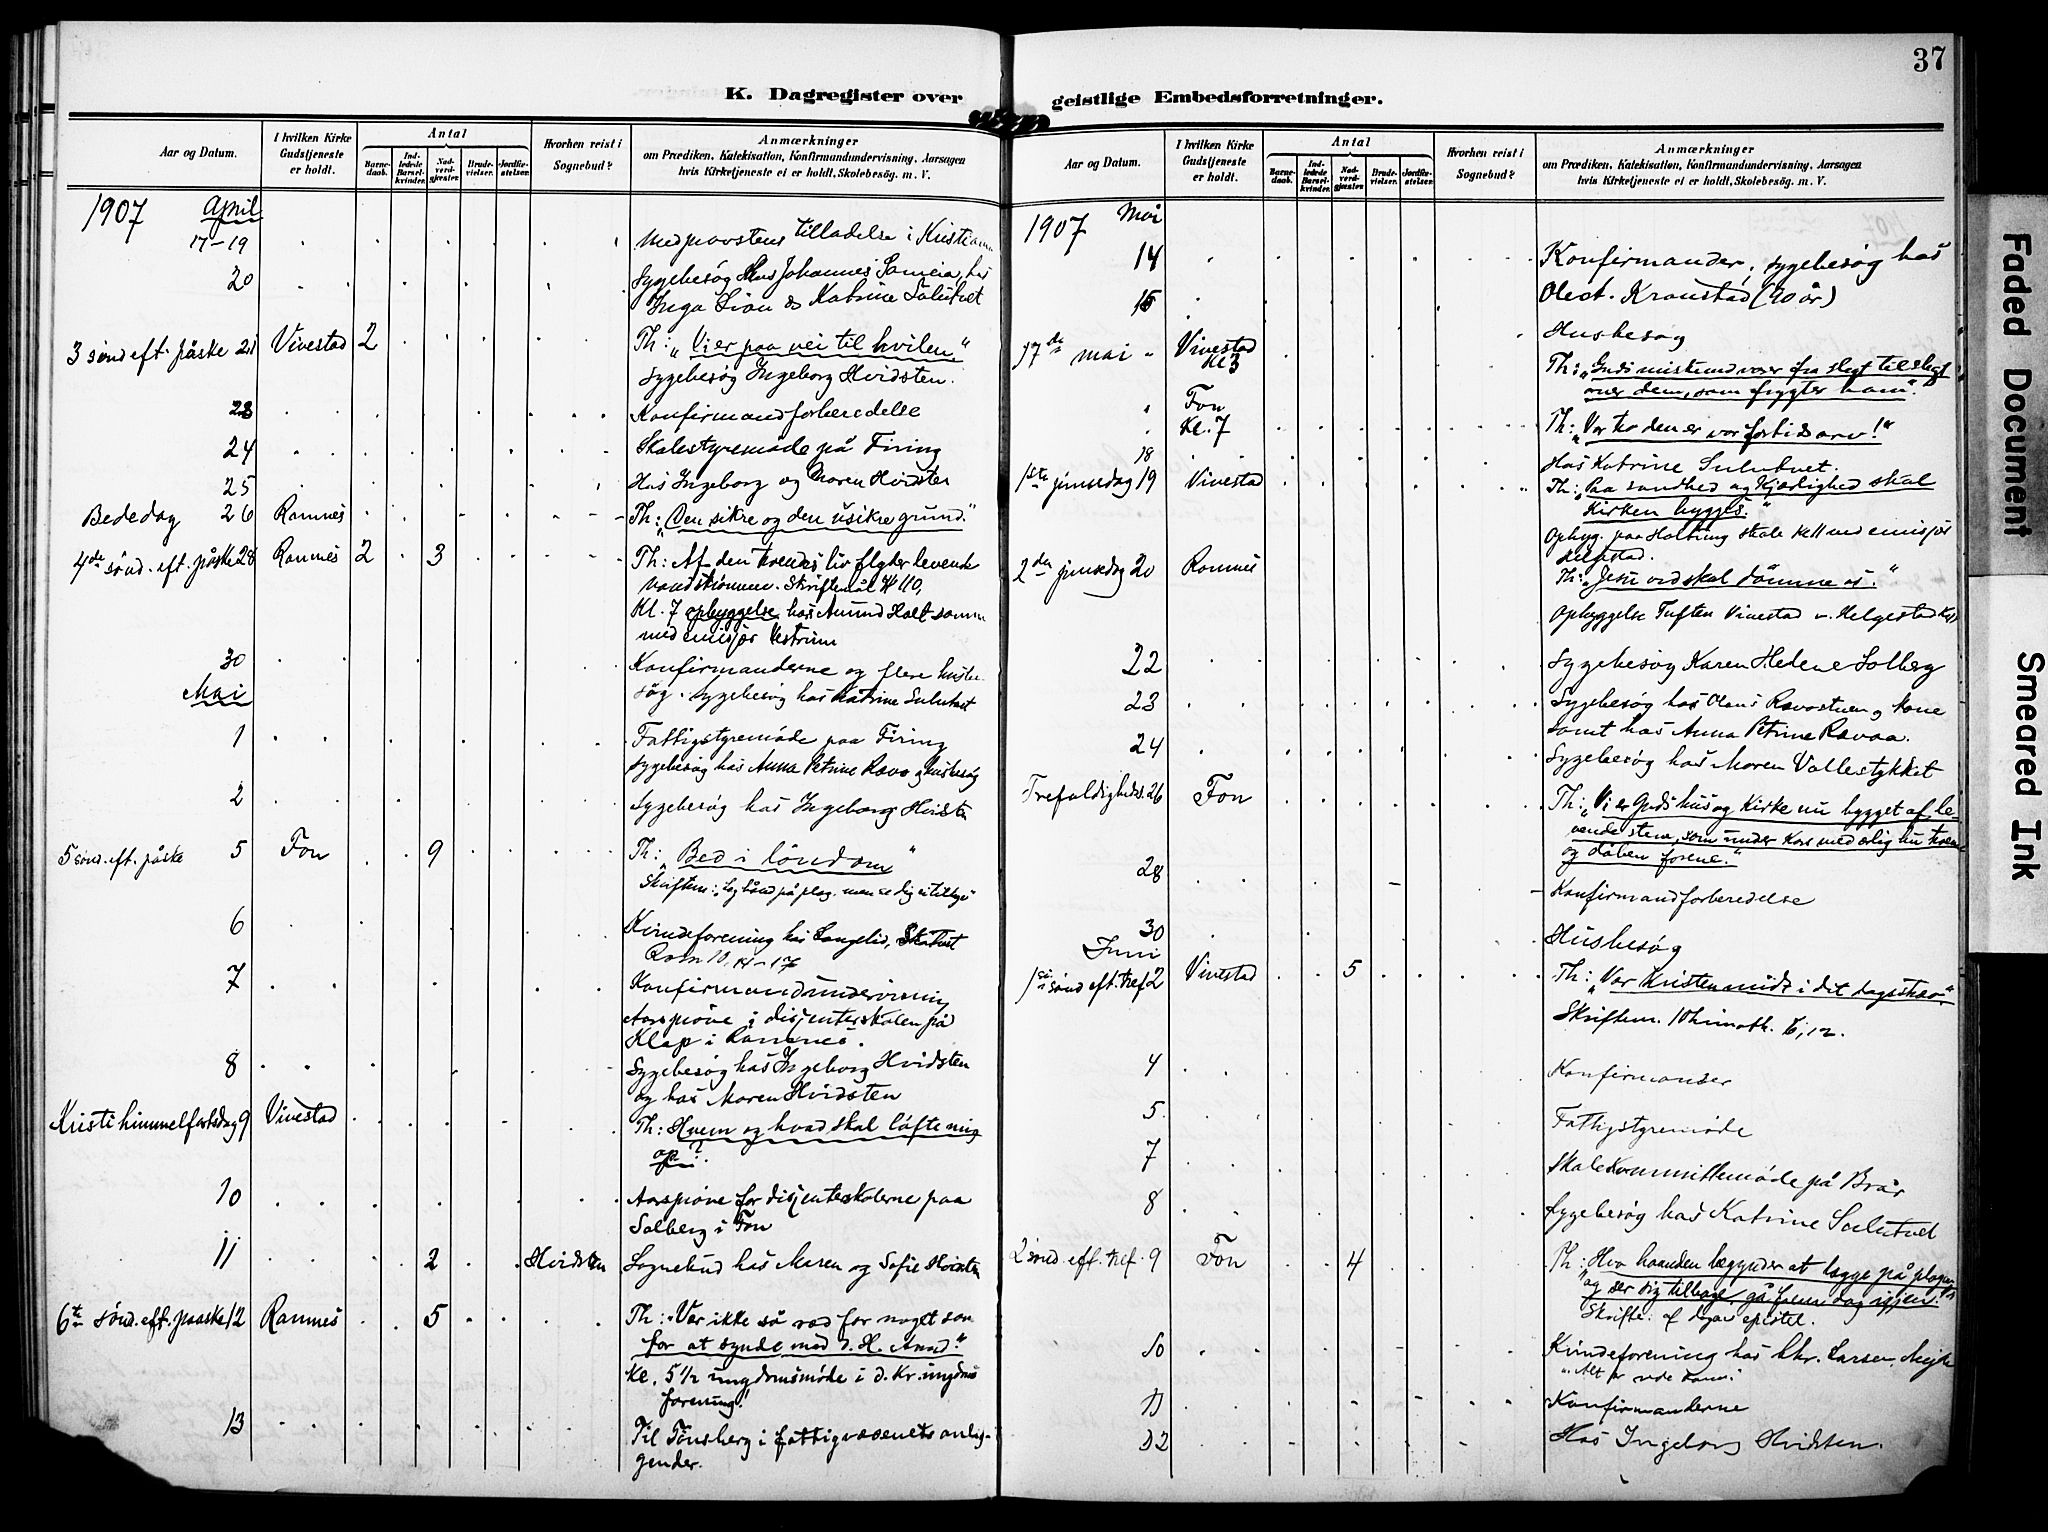 37
K. Dagregister over geistlige Embedsforretninger.
Aar og Datum.
I hvilken Kirke Gudstjeneste er holdt.
Antal
Barne-daab.
Ind-ledede Barsel-kvinder.
Nad-verd-gjester.
Brude-vielser.
Jordfæ-stelser.
Hvorhen reist i Sognebud?
Anmærkninger
om Prædiken, Katekisation, Konfirmandundervisning, Aarsagen
hvis Kirketjeneste ei er holdt, Skolebesøg. m. V.
1907 April
17-19 Med provstens tilladelse i Kristiania
20 Sygebesøg hos Johannes Sameia, hos
Inga Lian & Katrine Sulutvet
3 sönd eft. påske 21 Vivestad 2 Th: „Vi er paa vei til hvilen."
Sygebesøg Ingeborg Hvidsten.
23 Konfirmandforberedelse
24 Skolestyremøde på Firing
25 Hos Ingeborg og Maren Hvidsten
Bededag 26 Ramnes Th: „Den sikre og den usikre grund."
4de sönd. eft. påske 28 Ramnes 2 3 Th: Af den troendes liv flyder levende
vandströmme. Skriftemål 110,
Kl. 7 opbyggelse hos Amund Holt samm
med emisjær Vestrum
30 Konfirmanderne og flere husbe-
søg. Sygebesøg hos Katrine Sulutvet
Mai
1 Fattigstyremøde paa Firing
Sygebesøg hos Anna Petrine Ravo og husbesøg
2 Sygebesøg hos Ingeborg Hvidsten
5 sönd. eft. påske 5 Fon 9 Th: „Bed i löndom"
Skriftem: „Læg hånd på plog. men se dig ei tilbage
6 Kvindeforening hos Langelid, Skatvet
Rom 10, 14-17
7 Konfirmandundervisning
Aarsprøve i disjenterskolen på
Klop i Ramnes.
8 Sygebesøg hos Ingeborg Hvidsten
og hos Maren Hvidsten
Kristi himmelfartsdag 9 Vivestad Th: Hvem og hvad skal løfte mig
op?
10 Aarsprøve for disjenterskolerne paa
Solberg i Fon
11 2 Hvidsten Sognebud hos Maren og Sofie Hvidsten
6te sönd. eft. paaske 12 Ramnes 5 Th: „Vær ikke så ræd for noget som
for at synde mod d. H. Aand."
Kl. 5 1/2 ungdomsmøde i d. Kr. ungdoms
forening!
13 Til Tönsberg i fattigvæsenets anlig-
gender.
Aar og Datum.
I hvilken Kirke Gudstjeneste er holdt.
Antal
Barne-daab.
Ind-ledede Barsel-kvinder.
Nad-verd-gjester.
Brude-vielser.
Jordfæ-stelser.
Hvorhen reist i Sognebud?
Anmærkninger
om Prædiken, Katekisation, Konfirmandundervisning, Aarsagen
hvis Kirketjeneste ei er holdt, Skolebesøg. m. V.
1907 Mai
14 Konfirmander, sygebesøg hos
Olect. Kronstad (90 år)
15 Husbesøg
17de mai Vivestad Kl 3 Th: „Guds miskund varer fra slegt til slegt
over dem, som frygter ham".
Fon Kl. 7 Th: „Vor tro den er vor fortids arv!"
18 Hos Katrine Sulutvet.
1ste pinsedag 19 Vivestad Th: „Paa sandhed og Kjærlighed skal
Kirken bygges."
Opbyg. paa Holtung skole Kl 1 med emisjær
Helgestad.
2den pinsedag 20 Ramnes Th: „Jesu ord skal dömme os."
Opbyggelse Tuften Vivestad v. Helgestad
22 Sygebesøg Karen Helene Solberg
23 Sygebesøg hos Olaus Ravastuen og kone
samt hos Anna Petrine Ravaa.
24 Sygebesøg hos Maren Vallestykket
Trefoldigheds. 26 Fon Th: „Vi er Guds hus og Kirke nu bygget af le-
vende stene, som under kors med ærlig hu troen
og dåben forene."
28 Konfirmandforberedelse
30 Husbesøg
Juni
1ste sönd eft. tref 2 Vivestad 5 Th: „Vor Kristenmidt i det dagsskær"
Skriftem. 1 Timoth. 6, 12.
4 Konfirmander
5 Fattigstyremøde
7 Skolekommittemøde på Brår
8 Sygebesøg hos Katrine Sulutvet
2 sönd. eft. tref. 9 Fon 4 Th: „Hvo haanden begynder at lægge på plogen
og ser sig tilbage, gå frem dog igjen."
Skrifte. af dagens epistel.
10 Kvindeforening hos Chr. Larsen,
„Alt er rede kom."
11 Konfirmanderne
12 Hos Ingeborg Hvidsten.
Faded Document
Smeared Ink